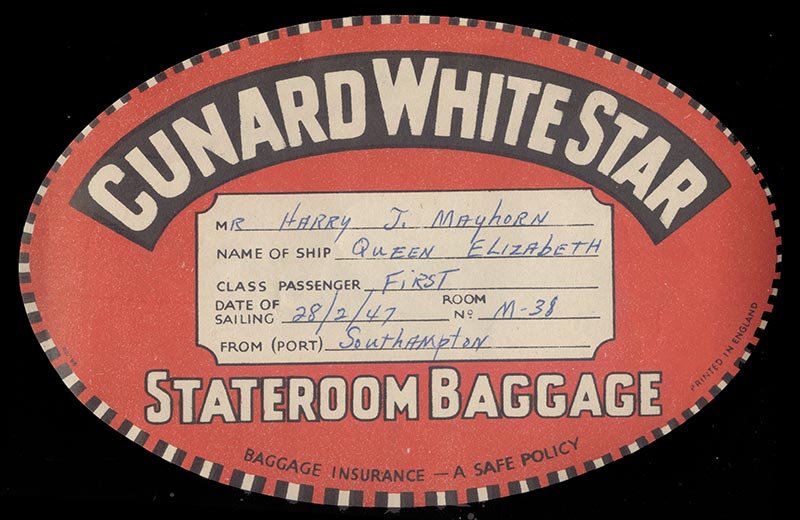 CUNARD WHITE STAR
MR HARRY J. MAYHORN
NAME OF SHIP QUEEN ELIZABETH
CLASS PASSENGER FIRST
DATE OF SAILING 28/2/47 ROOM Nº M-38
FROM (PORT) Southampton
STATEROOM BAGGAGE
BAGGAGE INSURANCE — A SAFE POLICY
PRINTED IN ENGLAND